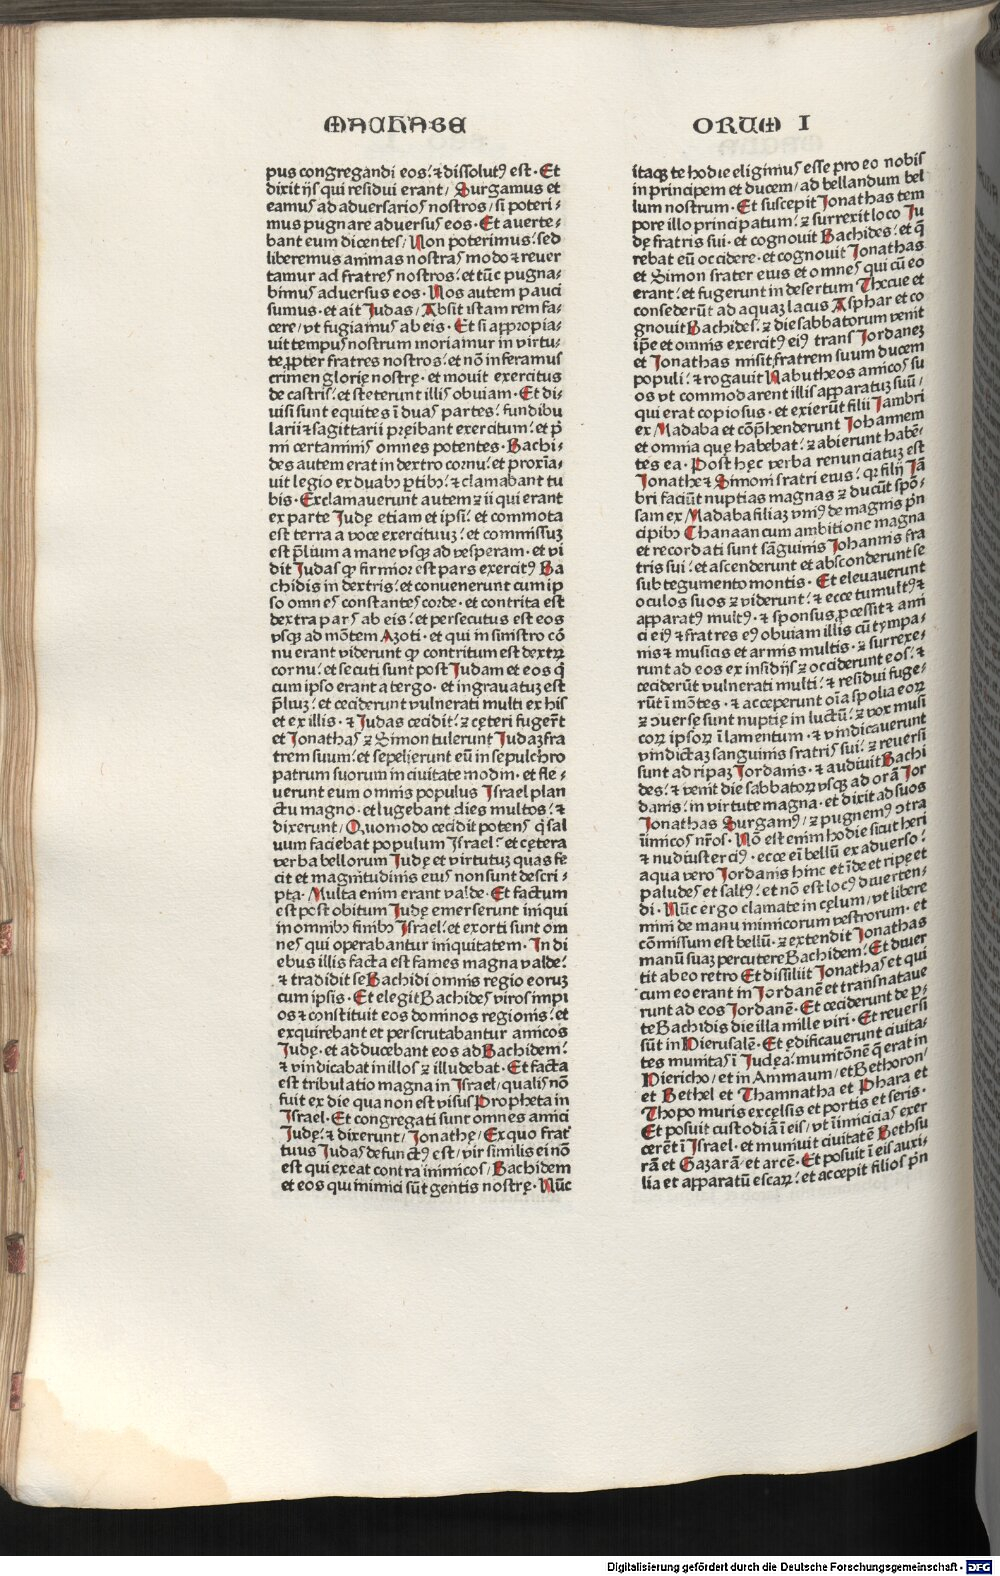 MACHABE
pus congregandi eos: ⁊ dissolutꝰ est · Et
dixit ijs qui residui erant / Surgamus et
eamus ad adversarios nostros / si poteri⸗
mus pugnare adversus eos · Et averte⸗
bant eum dicentes / Non poterimus: sed
liberemus animas nostras modo ⁊ rever
tamur ad fratres nostros: et tūc pugna⸗
bimus adversus eos · Nos autem pauci
sumus · et ait Judas / Absit istam rem fa⸗
cere / vt fugiamus ab eis · Et si appropia⸗
vit tempus nostrum moriamur in virtu⸗
te ꝓpter fratres nostros: et nō inferamus
crimen glorię nostrę · et movit exercitus
de castris: et steterunt illis obviam · Et di⸗
visi sunt equites ī duas partes: fundibu
larii ⁊ sagittarii pręibant exercitum: et p̄
mi certaminis omnes potentes · Bachi⸗
des autem erat in dextro cornu: et proxīa⸗
vit legio ex duabꝫ ꝑtibꝫ: ⁊ clamabant tu
bis · Exclamaverunt autem ⁊ ii qui erant
ex parte Judę etiam et ipsi: et commota
est terra a voce exercituuꝫ: et commissuꝫ
est p̄lium a mane vsqꝫ ad vesperam · et vi
dit Judas ꝙ firmior est pars exercitꝰ Ba
chidis in dextris: et convenerunt cum ip
so omnes constantes corde · et contrita est
dextra pars ab eis: et persecutus est eos
vsqꝫ ad mōtem Azoti · et qui in sinistro cō
nu erant viderunt ꝙ contritum est dextꝝ
cornu: et secuti sunt post Judam et eos q̇
cum ipso erant a tergo · et ingravatuꝫ est
p̄liuꝫ: et ceciderunt vulnerati multi ex his
et ex illis · ⁊ Judas cecidit: ⁊ cęteri fuger̄t
et Jonathas ⁊ Simon tulerunt Judaꝫ fra
trem suum: et sepelierunt eū in sepulchro
patrum suorum in civitate modin · et fle⸗
verunt eum omnis populus Israel plan
ctu magno · et lugebant dies multos: ⁊
dixerunt / Quomodo cecidit potens q̇ sal
vum faciebat populum Israel: et cętera
verba bellorum Judę et virtutuꝫ quas fe
cit et magnitudinis eius non sunt descri⸗
pta · Multa enim erant valde · Et factum
est post obitum Judę emerserunt iniqui
in omnibꝫ finibꝫ Israel: et exorti sunt om
nes qui operabantur iniquitatem · In di
ebus illis facta est fames magna valde:
⁊ tradidit se Bachidi omnis regio eoruꝫ
cum ipsis · Et elegit Bachides viros impi
os ⁊ constituit eos dominos regionis: et
exquirebant et perscrutabantur amicos
Judę · et adducebant eos ad Bachidem:
⁊ vindicabat in illos ⁊ illudebat · Et facta
est tribulatio magna in Israel / qualis nō
fuit ex die qua non est visus Propheta in
Israel · Et congregati sunt omnes amici
Judę: ⁊ dixerunt / Jonathę / Ex quo frat
tuus Judas defunctꝰ est / vir similis ei nō
est qui exeat contra inimicos / Bachidem
et eos qui inimici sūt gentis nostrę · Nūc
ORUM I
itaqꝫ te hodie eligimus esse pro eo nobis
in principem et ducem / ad bellandum bel
lum nostrum · Et suscepit Jonathas tem
pore illo principatum: ⁊ surrexit loco Ju
dę fratris sui · et cognovit Bachides: et q̄
rebat eū occidere · et cognovit Jonathas
et Simon frater eius et omnes qui cū eo
erant: et fugerunt in desertum Thecue et
consederūt ad aquaꝫ lacus Asphar et co
gnovit Bachides: ⁊ die sabbatorum venit
ip̄e et omnis exercitꝰ eiꝰ trans Jordaneꝫ
et Jonathas misit fratrem suum ducem
populi: ⁊ rogavit Nabutheos amicos su
os vt commodarent illis apparatuꝫ suū /
qui erat copiosus · et exierūt filii Jambri
ex Madaba et cōp̄henderunt Johannem
et omnia quę habebat: ⁊ abierunt habē⸗
tes ea · Post hęc verba renunciatuꝫ est
Jonathę ⁊ Simoni fratri eius: qꝛ filij Jā
bri faciūt nuptias magnas ⁊ ducūt spō⸗
sam ex Madaba filiaꝫ vniꝰ de magnis p̄n
cipibꝫ Chanaan cum ambitione magna
et recordati sunt sāguinis Johannis fra
tris sui: et ascenderunt et absconderunt se
sub tegumento montis · Et elevaverunt
oculos suos ⁊ viderunt: ⁊ ecce tumultꝰ ⁊
apparatꝰ multꝰ · ⁊ sponsus ꝓcessit ⁊ ami
ci eiꝰ ⁊ fratres eiꝰ obviam illis cū tympa⸗
nis ⁊ musicis et armis multis · ⁊ surrexe⸗
runt ad eos ex insidijs ⁊ occiderunt eos: ⁊
ceciderūt vulnerati multi: ⁊ residui fuge⸗
rūt ī mōtes · ⁊ acceperunt oīa spolia eoꝝ
⁊ ↄverse sunt nuptię in luctū: ⁊ vox musi
coꝝ ipsoꝝ ī lamentum · ⁊ vindicaverunt
vindictaꝫ sanguinis fratris sui: ⁊ reversi
sunt ad ripaꝫ Jordanis · ⁊ audivit Bachi
des: ⁊ venit die sabbatoꝝ vsqꝫ ad orā Jor
danis: in virtute magna · et dixit ad suos
Jonathas Surgamꝰ / ⁊ pugnemꝰ ↄtra
īimicos nr̄os · Nō est enim hodie sicut heri
⁊ nudiusterciꝰ · ecce eī bellū ex adverso:
aqua vero Jordanis hinc et īde et ripę et
paludes et saltꝰ: et nō est locꝰ diverten⸗
di · Nūc ergo clamate in cęlum / vt libere
mini de manu inimicorum vestrorum · et
cōmissum est bellū · ⁊ extendit Jonathas
manū suaꝫ percutere Bachidem: Et diver
tit ab eo retro Et dissiliit Jonathas et qui
cum eo erant in Jordanē et transnatave
runt ad eos Jordanē · Et ceciderunt de p̱⸗
te Bachidis die illa mille viri · Et reversi
sūt in Hierusalē · Et ędificaverunt civita⸗
tes munitas ī Judęa: munitōnē q̄ erat in
Hiericho / et in Ammaum / et Bethoron /
et Bethel et Thamnatha et Phara et
Thopo muris excelsis et portis et seris ·
Et posuit custodiā ī eis / vt īimicicias exer
cerēt ī Israel · et munivit civitatē Bethsu
rā et Gazarā / et arcē · Et posuit ī eis auxi⸗
lia et apparatū escaꝝ: et accepit filios p̄n
Digitalisierung gefördert durch die Deutsche Forschungsgemeinschaft - DFG